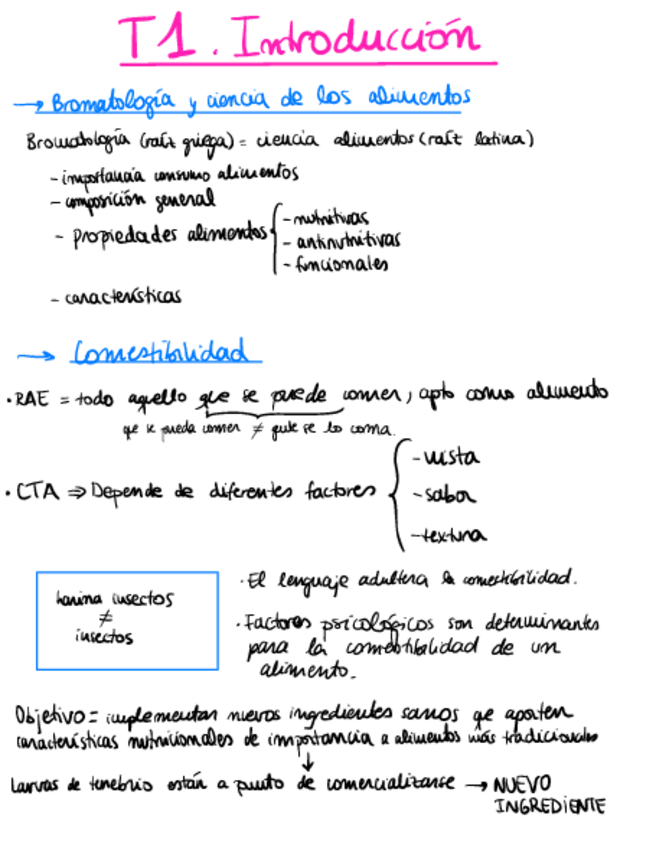 T1. Introducción
→ Bromatología y ciencia de los alimentos
Bromatología (raíz griega) = ciencia alimentos (raíz latina)
- importancia consumo alimentos
- composición general
- propiedades alimentos
- nutritivas
- antinutritivas
- funcionales
- características
→ Comestibilidad
· RAE = todo aquello que se puede comer, apto como alimento
que se pueda comer ≠ que se lo coma.
· CTA ⇒ Depende de diferentes factores
- vista
- sabor
- textura
harina insectos
≠
insectos
· El lenguaje adultera la comestibilidad.
· Factores psicológicos son determinantes
para la comestibilidad de un
alimento.
Objetivo = implementar nuevos ingredientes sanos qe aporten
características nutricionales de importancia a alimentos más tradicionales
↓
Larvas de tenebrio están a punto de comercializarse → NUEVO
INGREDIENTE